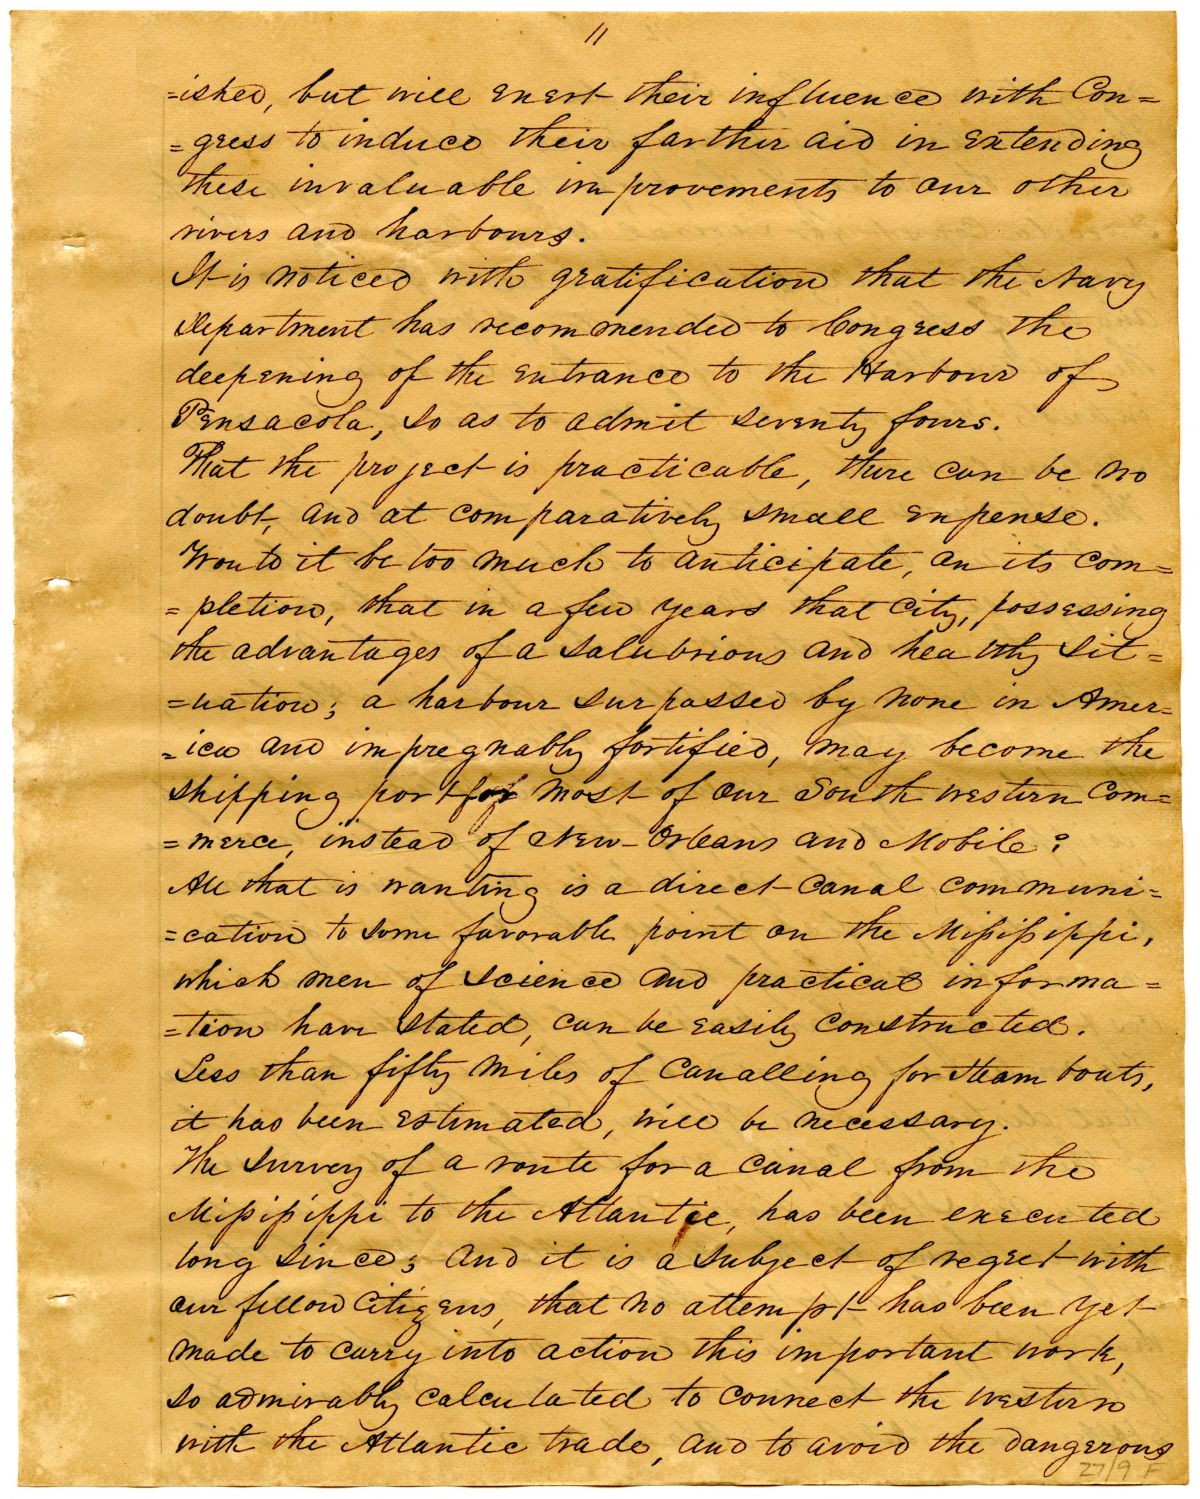 11
=ished, but will exert their influence with Con=
=gress to induce their farther aid in extending
these invaluable improvements to our other
rivers and harbours.
It is noticed with gratification that the Navy
Department has recommended to Congress the
deepening of the entrance to the Harbour of
Pensacola, so as to admit seventy fours.
That the project is practicable, there can be no
doubt, and at comparatively small expense.
Would it be too much to anticipate, on its com=
=pletion, that in a few years that City, possessing
the advantages of a salubrious and healthy sit=
=uation; a harbour surpassed by none in Amer=
=ica and impregnably fortified, may become the
shipping port for most of our South western Com=
=merce, instead of New-Orleans and Mobile?
All that is wanting is a direct canal communi=
=cation to some favorable point on the Missisippi,
which men of science and practical informa=
=tion have stated, can be easily constructed.
Less than fifty miles of Canalling for steam boats,
it has been estimated, will be necessary.
The survey of a route for a canal from the
Missisippi to the Atlantic, has been executed
long since; and it is a subject of regret with
our fellow Citizens, that no attempt has been yet
made to carry into action this important work,
so admirably calculated to connect the western
with the Atlantic trade, and to avoid the dangerous
27/9 F